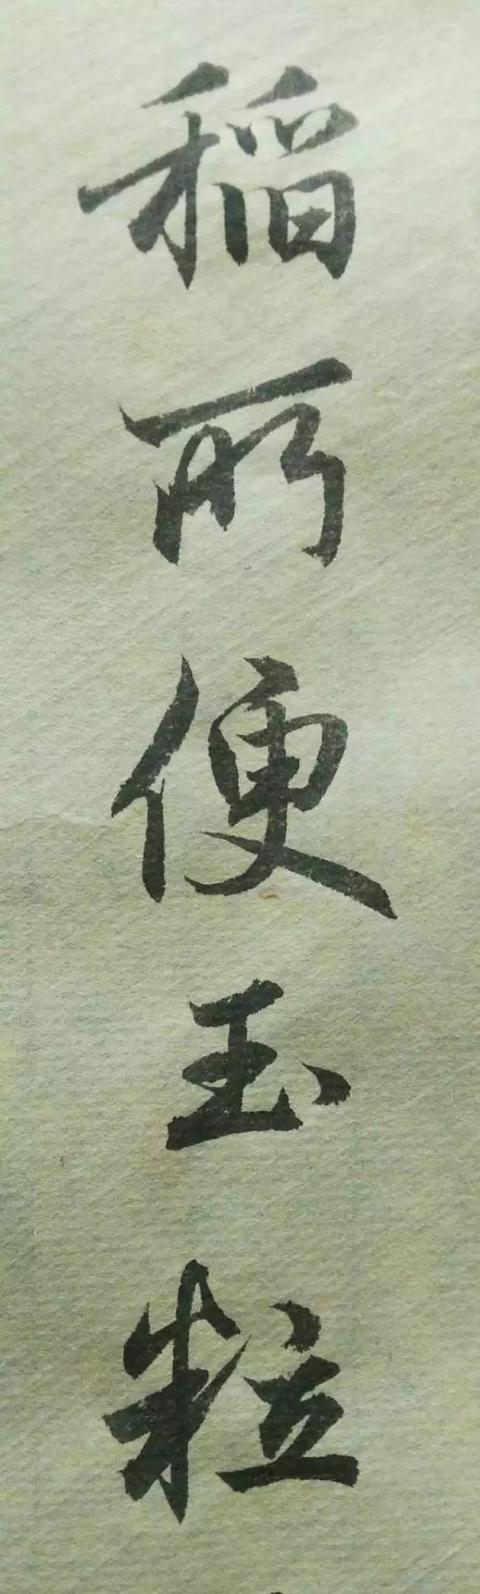 稻所便玉粒